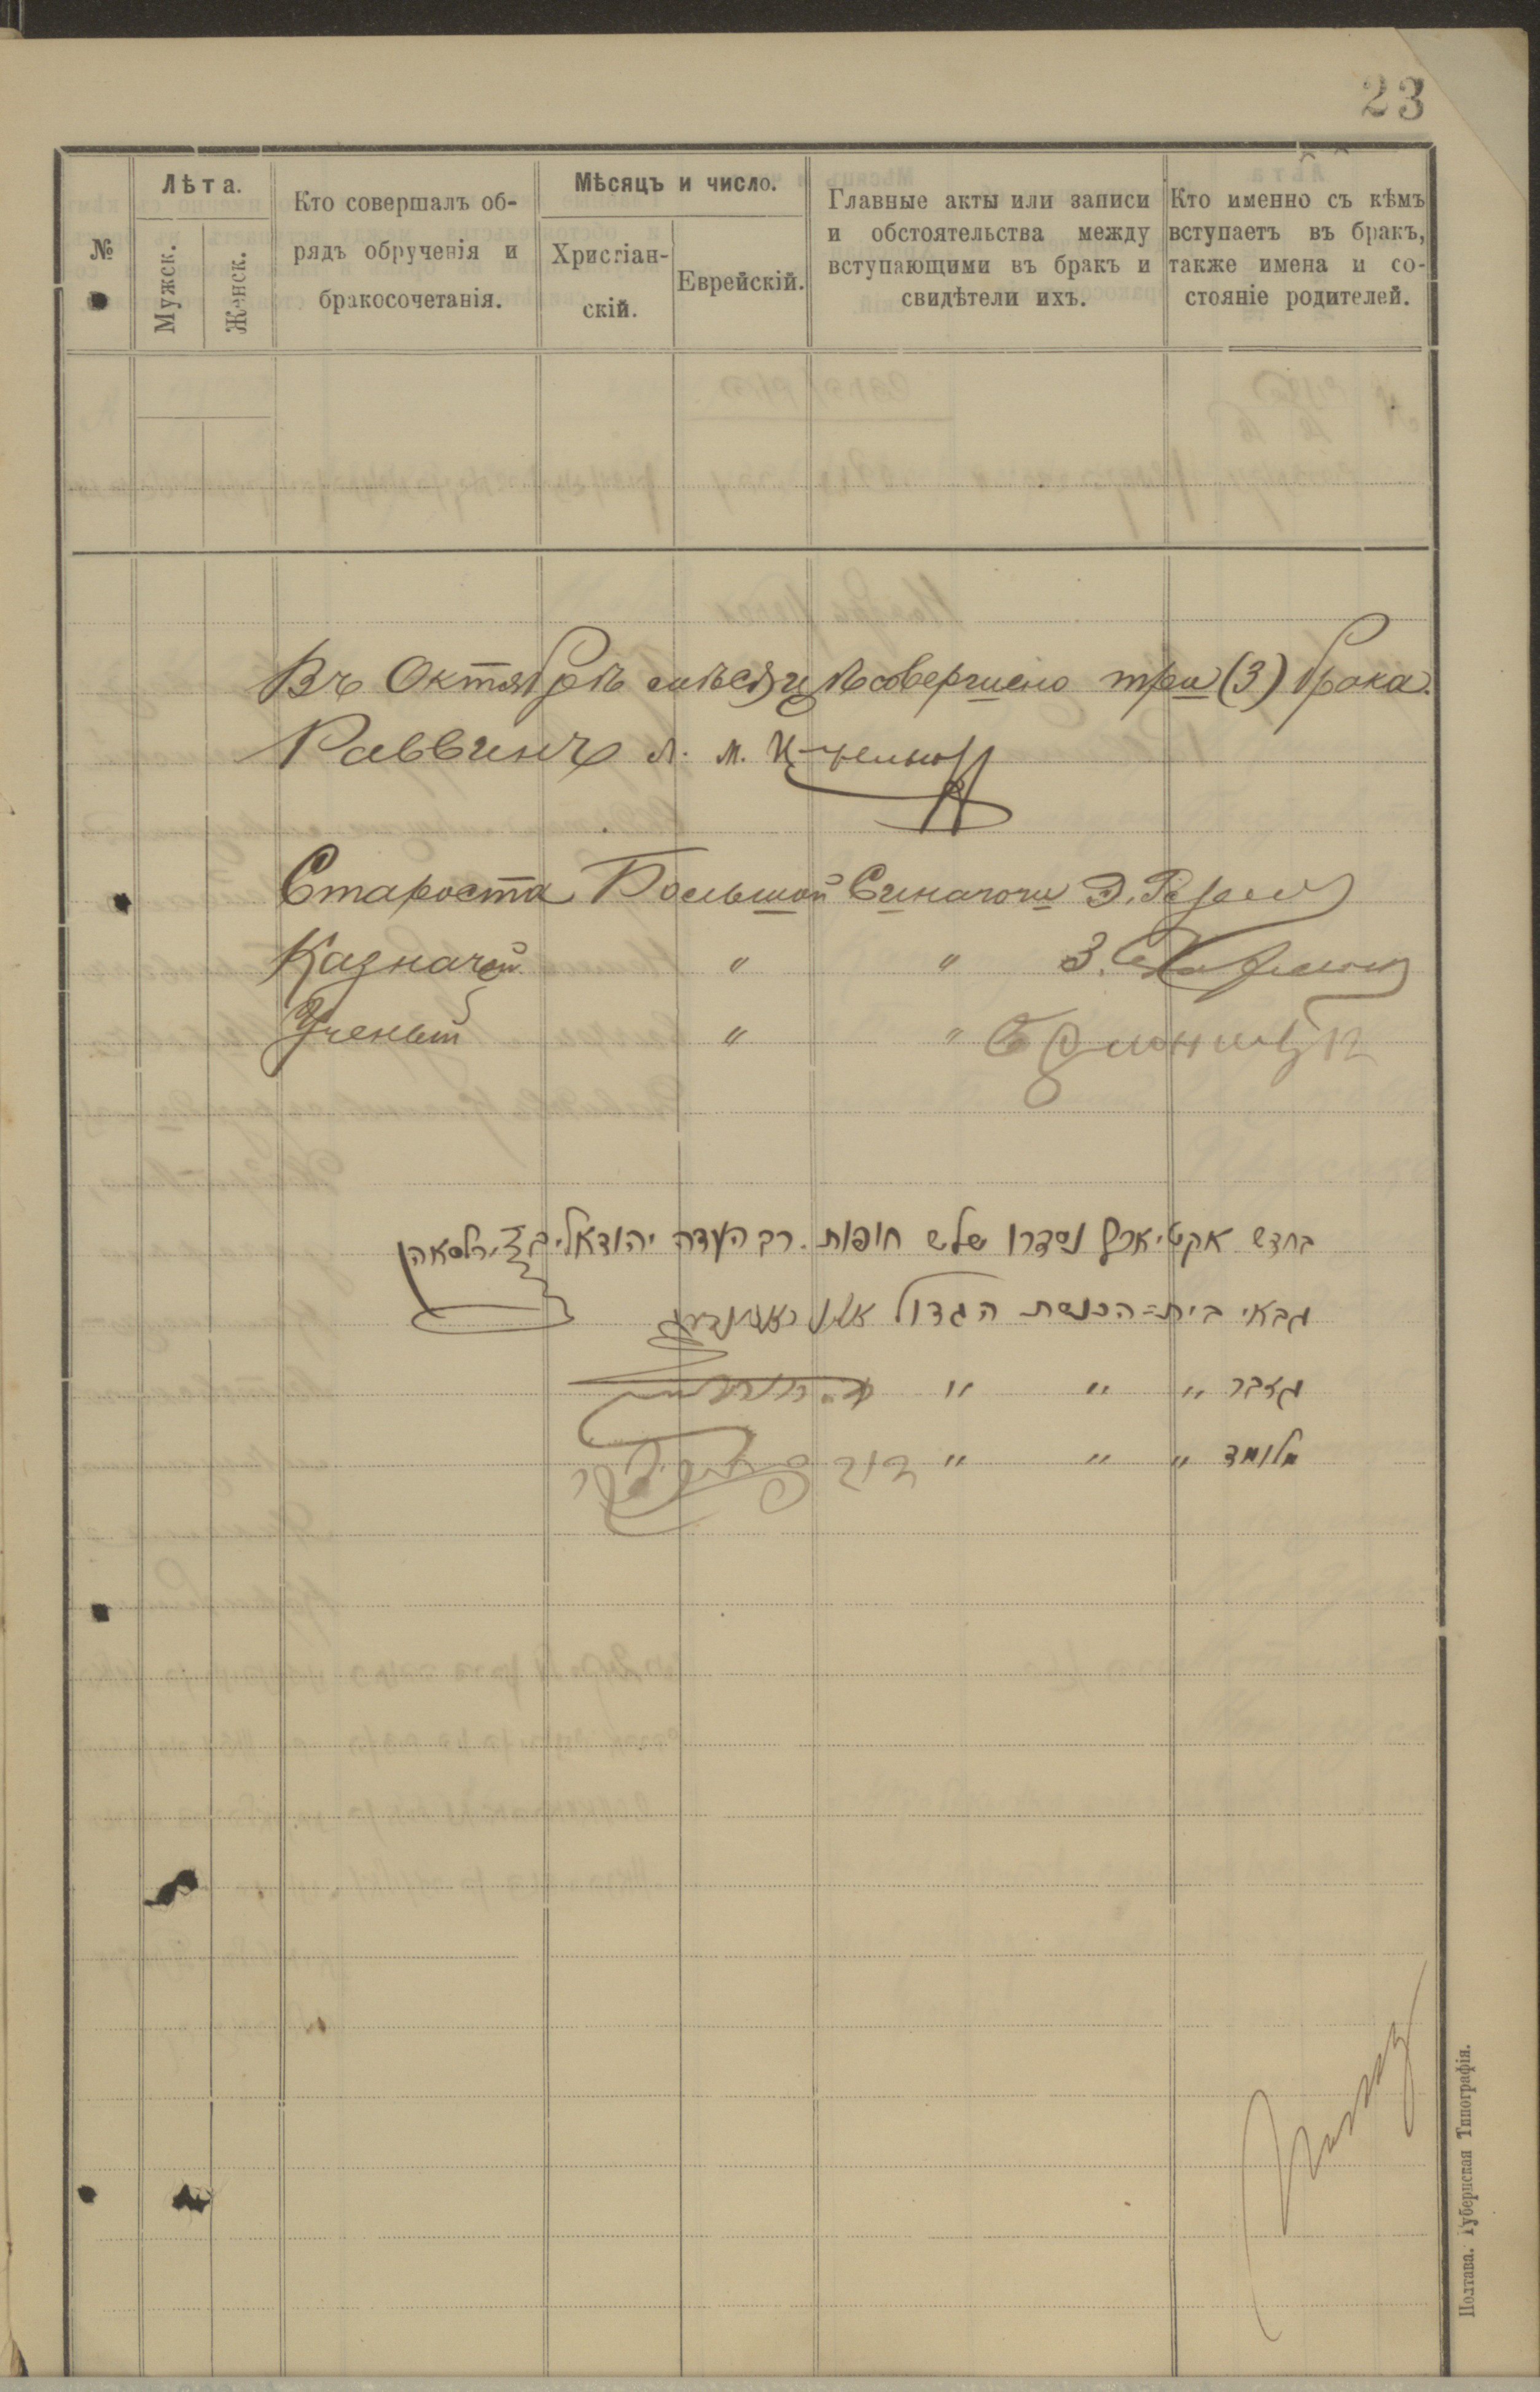 23
№
Лѣта.
Мужск.
Женск.
Кто совершалъ об-
рядъ обрученія и
бракосочетанія.
Мѣсяцъ и число.
Христіан-
скій.
Еврейскій.
Главные акты или записи
и обстоятельства между
вступающими въ бракъ и
свидѣтели ихъ.
Кто именно съ кѣмъ
вступаетъ въ бракъ,
также имена и со-
стояніе родителей.
Въ Октябрѣ мѣсяцѣ совершено три (3) брака.
Раввинъ А. М.
Староста Большой Синагоги Э.
Казначей " " З.
Ученый " "
בחדש נסדרו שלש חופות. רב העדה
גבאי בית=הכנסת הגדול
גזבר " " "
מלומד " " " דוד
Полтава. Губернская Типографія.